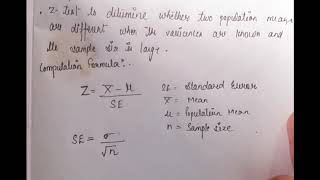 . Z- test to ditermine whether two population means
are different when the variances are known and
the sample size is large.
Computation Formula:-
Z = X̄ - μ / SE
SE = Standard Error
X̄ = Mean
μ = Population Mean
n = Sample size
SE = σ / √n